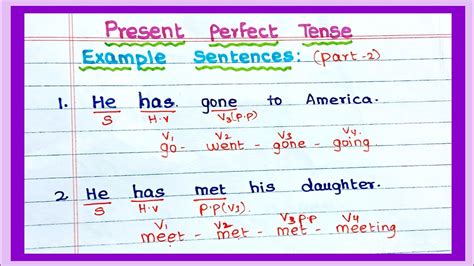 Present Perfect Tense
Example Sentences: (part-2)
1. He has gone to America.
S H.V V3(P.P)
V1 V2 V3 V4
go - went - gone - going
2. He has met his daughter.
S H.V P.P(V3)
V1 V2 V3 P.P V4
meet - met - met - meeting